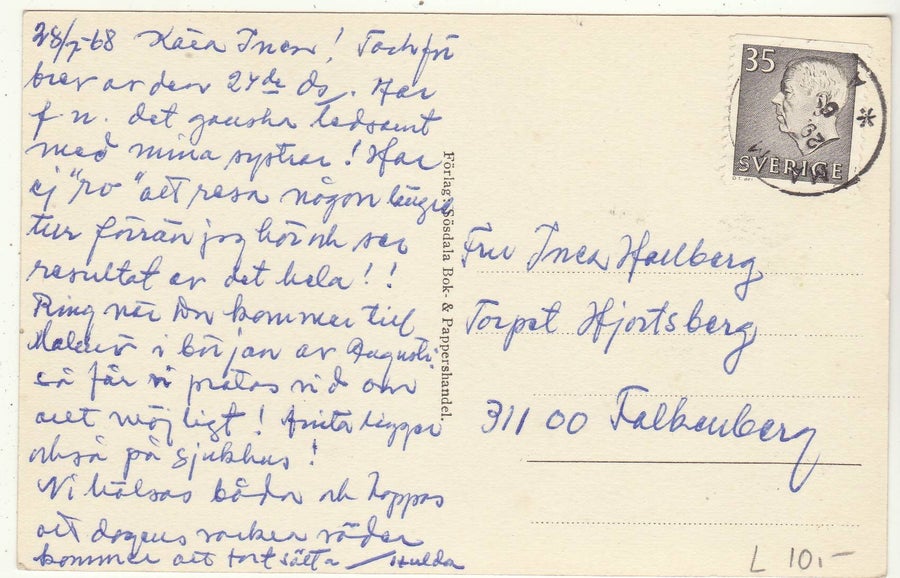 28/7-68 Kära Inea! Tack för
brev av den 24de ds. Har
f n. det ganska ledsamt
med mina systrar! Har
ej "ro" att resa någon längre
tur förrän jag hör och ser
resultat av det hela!!
Ring när Du kommer till
Malmö i början av Augusti
så får vi pratas vid om
allt möjligt! Anita ligger
också på sjukhus!
Vi hälsas båda och hoppas
att dagens vackra väder
kommer att fortsätta /Hulda
Förlag: Sösdala Bok- & Pappershandel.
35
SVERIGE
Fru Inea Hallberg
Torpet Hjortsberg
311 00 Falkenberg
L 10,-